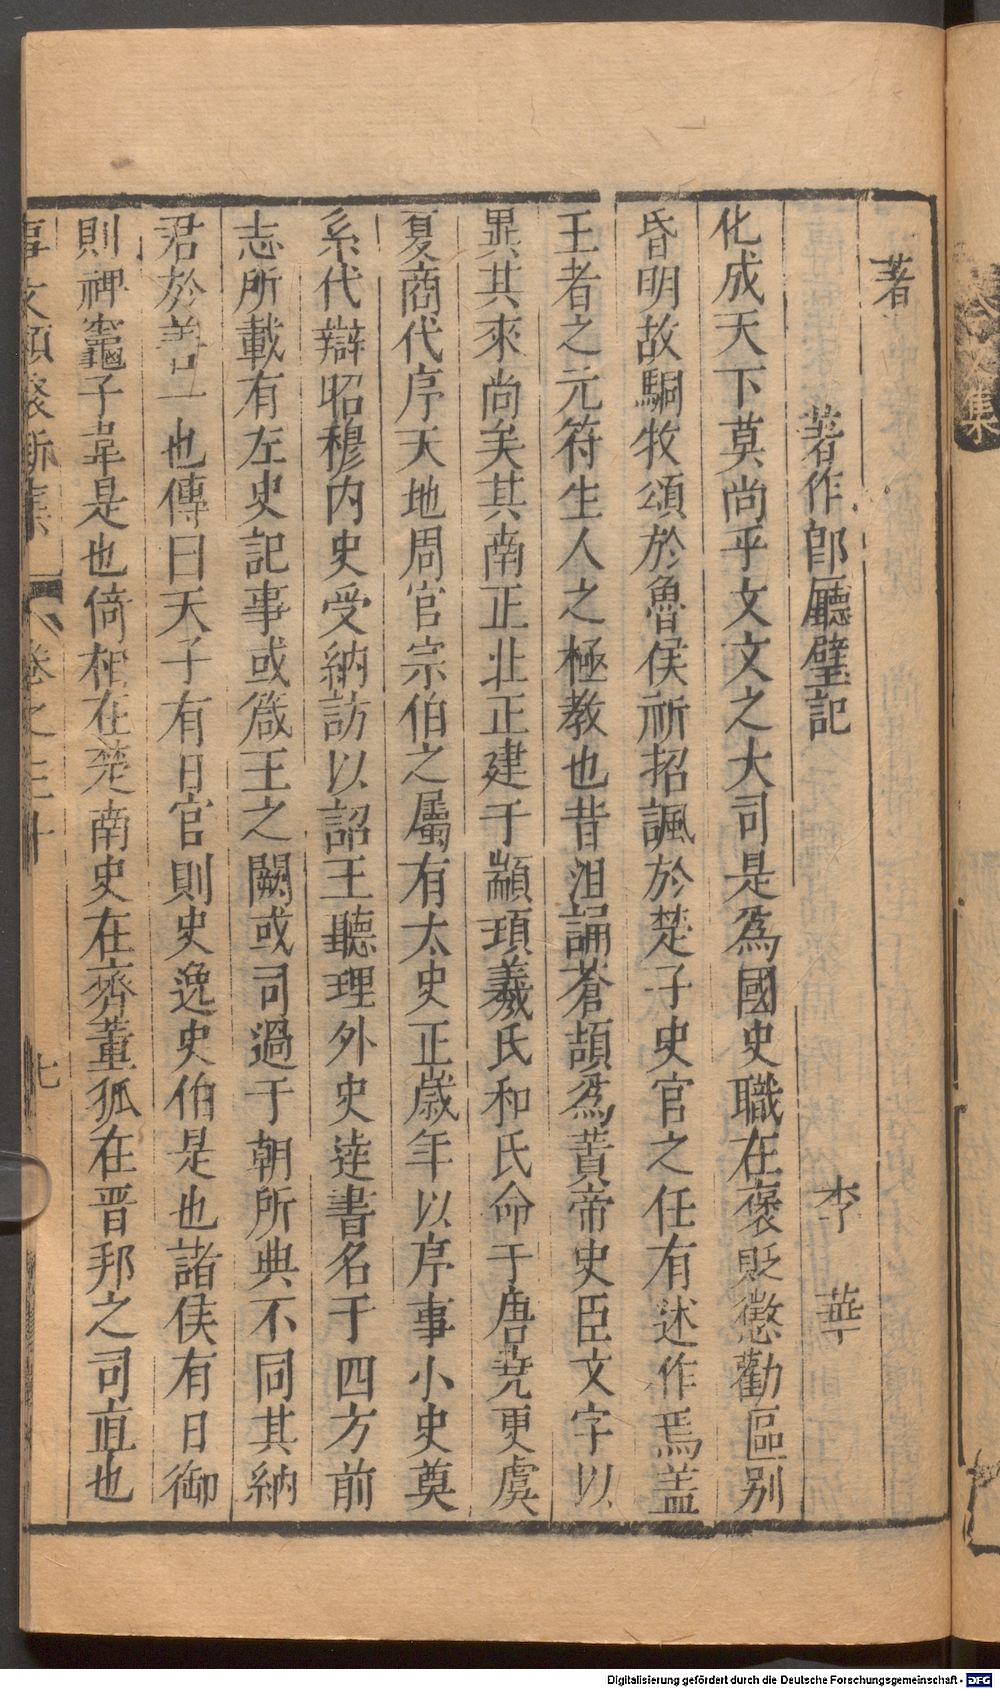 著
著作郎廳壁記　李　華
化成天下莫尚乎文文之大司是爲國史職在褒貶懲勸區别
昏明故駉牧頌於魯侯祈招諷於楚子史官之任有述作焉盖
王者之元符生人之極教也昔沮誦蒼頡爲黃帝史臣文字以
異其來尚矣其南正北正建于顓頊羲氏和氏命于唐堯更虞
夏商代序天地周官宗伯之屬有太史正歲年以序事小史奠
系代辯昭穆内史受納訪以詔王聽理外史逹書名于四方前
志所載有左史記事或箴王之闕或司過于朝所典不同其納
君於善一也傳曰天子有日官則史逸史伯是也諸侯有日御
則裨竈子韋是也倚相在楚南史在齊董狐在晋邦之司直也
卷之三十　七
集
Digitalisierung gefördert durch die Deutsche Forschungsgemeinschaft - DFG